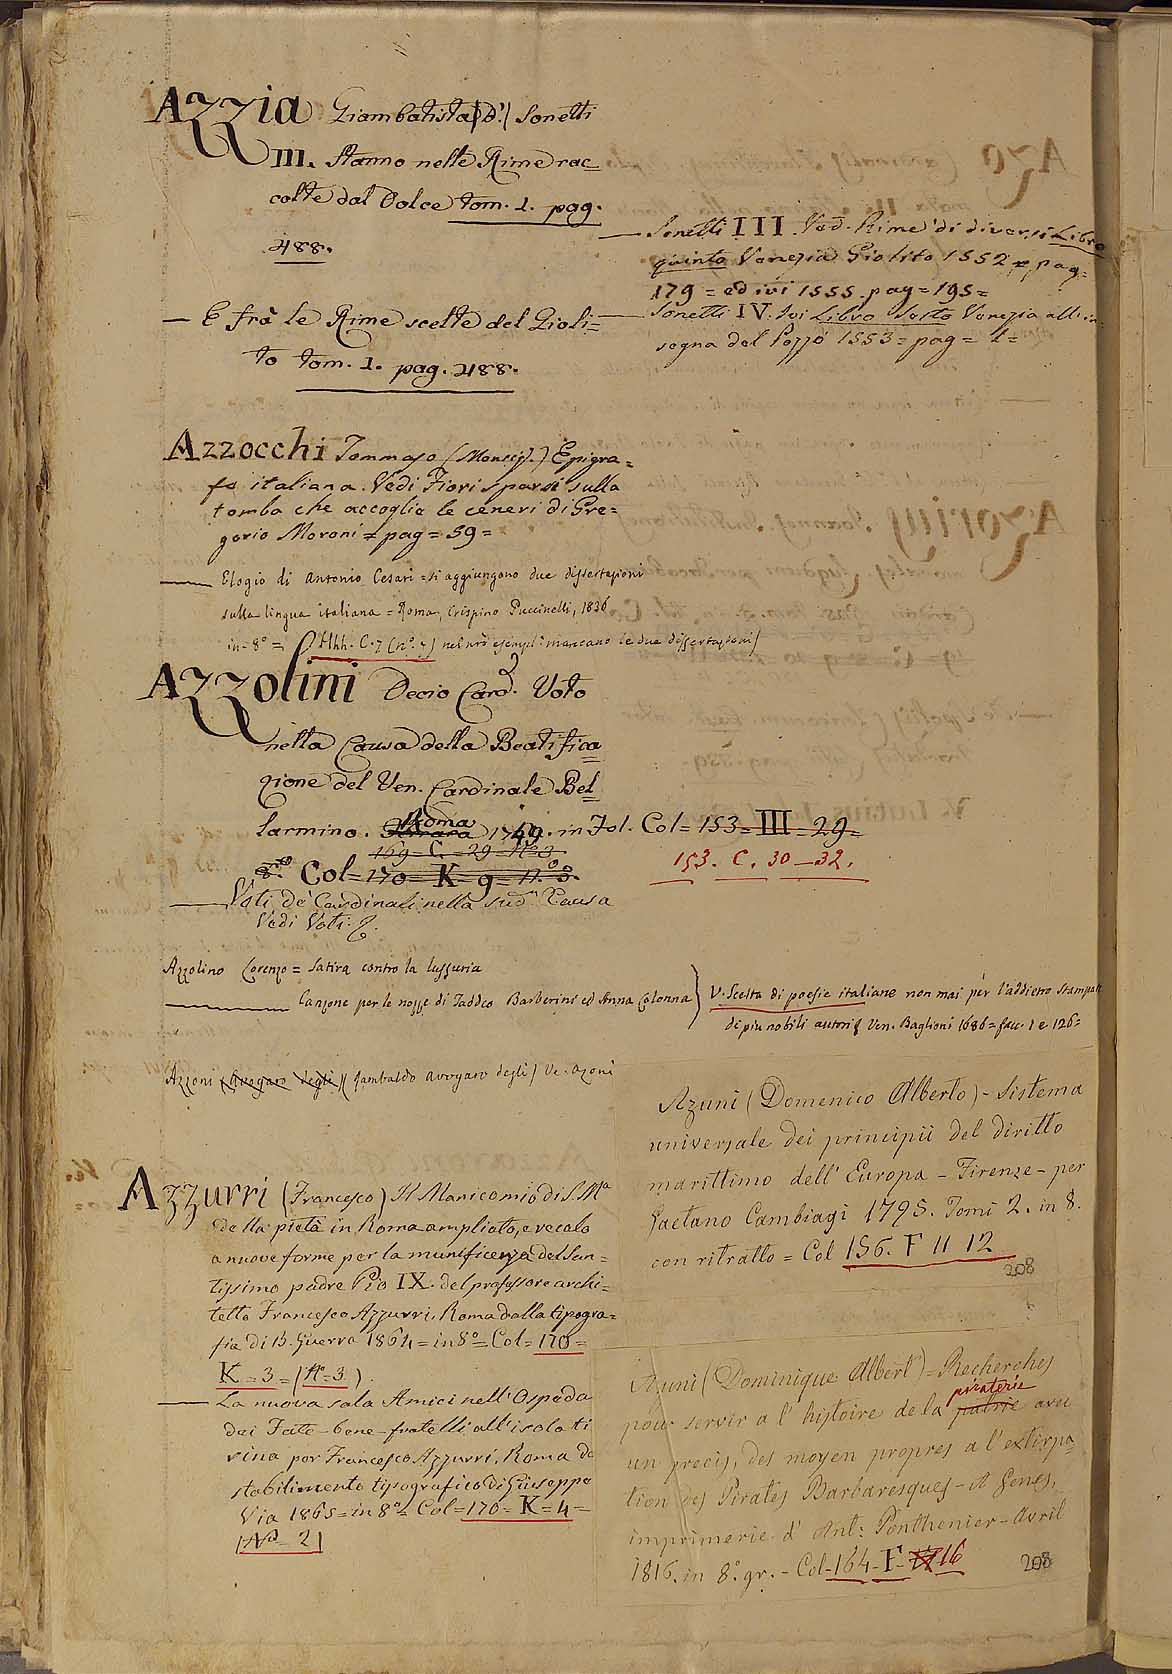 Azzia Giambatista (D') Sonetti
III. Stanno nelle Rime rac=
colte dal Dolce tom. 1. pag.
488.
— E frà le Rime scelte del Gioli=
to tom. 1. pag. 488.
— Sonetti III Ved. Rime di diversi Libro
quinto Venezia Giolito 1552 = pag=
179 = ed ivi 1555. pag = 195 =
— Sonetti IV. Ivi Libro Sesto Venezia all' in
segna del Pozzo 1553 = pag = 1 =
Azzocchi Tommaso (Monsig.) Epigra=
fe italiana. Vedi Fiori sparsi sulla
tomba che accoglie le ceneri di Gre=
gorio Moroni = pag = 59 =
— Elogio di Antonio Cesari = si aggiungono due dissertazioni
sulla lingua italiana = Roma, Crispino Puccinelli, 1836
in-8° = (Hhh. C. 7 (n°. 7) nel nrõ esempl: mancano le due dissertazioni)
Azzolini Decio Card. Voto
nella Causa della Beatifica=
zione del Ven. Cardinale Bel=
larmino. Ferrara Roma 1749. in Fol. Col = 153 = III = 29 =
169 = C. = 29 = N° 3.
153. C. 30 — 32.
8.vo Col = 170 = K = 9 = N.° 3.
— Voti de' Cardinali nella sud.a Causa
Vedi Voti.
Azzolino Lorenzo = Satira contro la lussuria
— Canzone per le nozze di Taddeo Barberini ed Anna Colonna } V. Scelta di poesie italiane non mai per l'addietro stampate
di più nobili autori. Ven. Baglioni 1686 = fac. 1 e 126 =
Azzoni (Avogaro degli) (Rambaldo Avogaro degli) Ve. Azoni
Azuni (Domenico Alberto) - Sistema
universale dei principii del diritto
marittimo dell' Europa - Firenze - per
Gaetano Cambiagi 1795. Tomi 2. in 8.
con ritratto = Col 156. F 11 12
208
Azzurri (Francesco) Il Manicomio di S. Ma
della pietà in Roma ampliato, e recato
a nuove forme per la munificenza del San=
tissimo padre Pio IX. del professore archi=
tetto Francesco Azzurri. Roma dalla tipogra=
fia di B. Guerra 1864 = in 8° = Col = 170 =
K = 3 = (N° = 3).
— La nuova sala Amici nell' Ospeda
dei Fate-bene-fratelli all' isola ti
rina per Francesco Azzurri. Roma da
stabilimento tipografico di Giuseppe
Via 1865 = in 8° = Col = 170 = K = 4 =
(N° = 2)
Azuni (Dominique Albert) = Recherches
pour servir a l' histoire de la patrie piraterie avec
un precis, des moyen propres a l' extirpa=
tion des Pirates Barbaresques - A Genes,
imprimerie d' Ant: Ponthenier - Avril
1816. in 8.° gr. - Col - 164 - F - 16
208